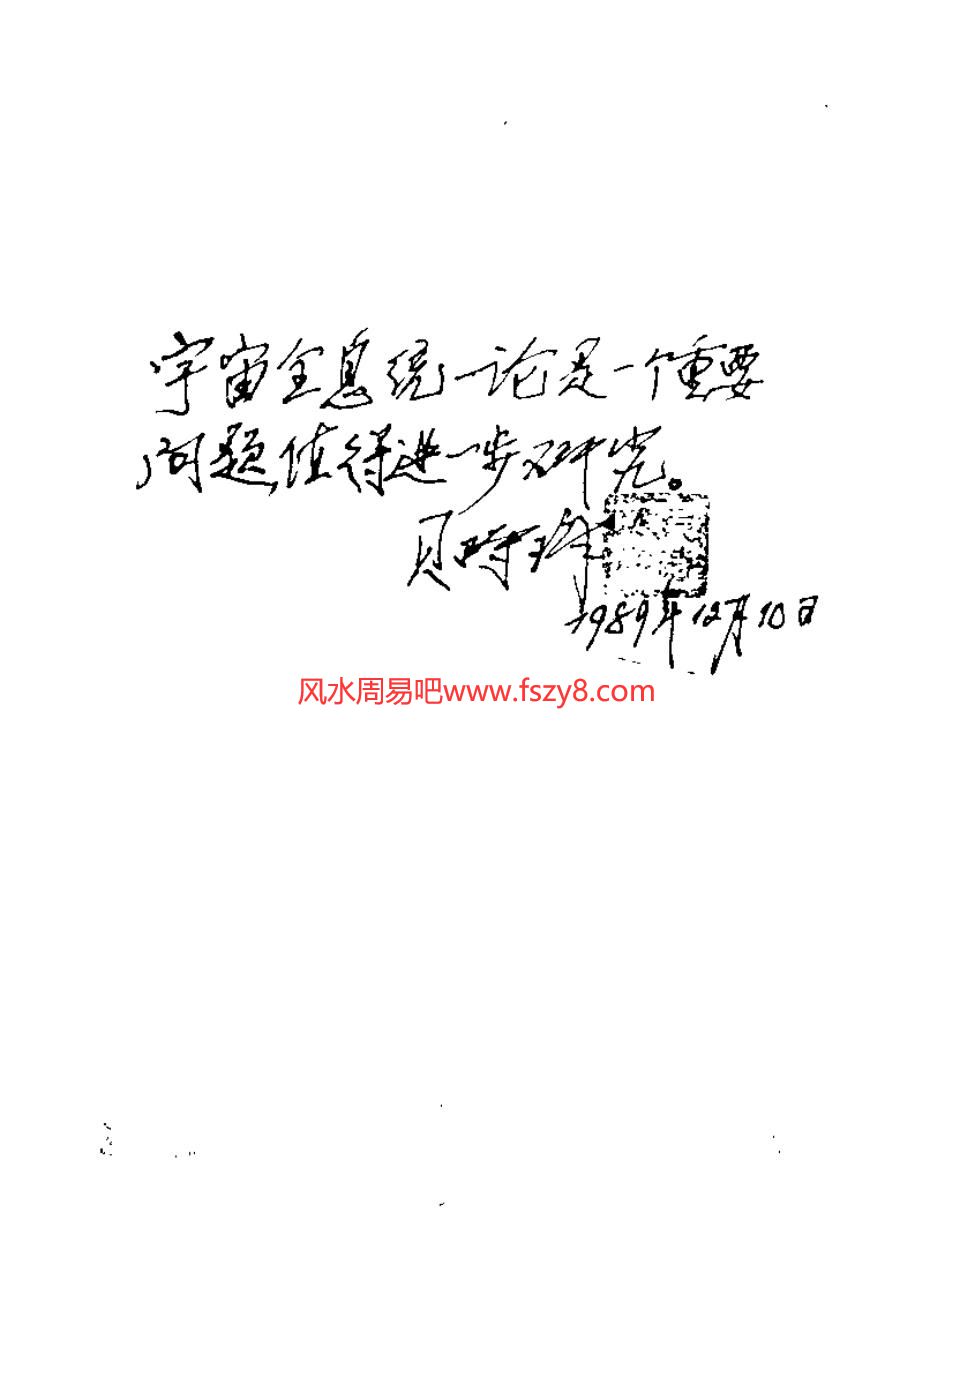 宇宙全息统一论是一个重要
问题,值得进一步研究。
贝时璋
1989年12月10日
风水周易吧www.fszy8.com